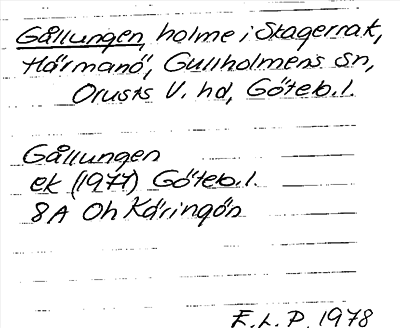 Gållungen, holme i Skagerrak,
Härmanö, Gullholmens sn,
Orusts V. hd, Göteb. l.
Gållungen
ek (1977) Göteb. l.
8A Oh Käringön
F. L. P. 1978